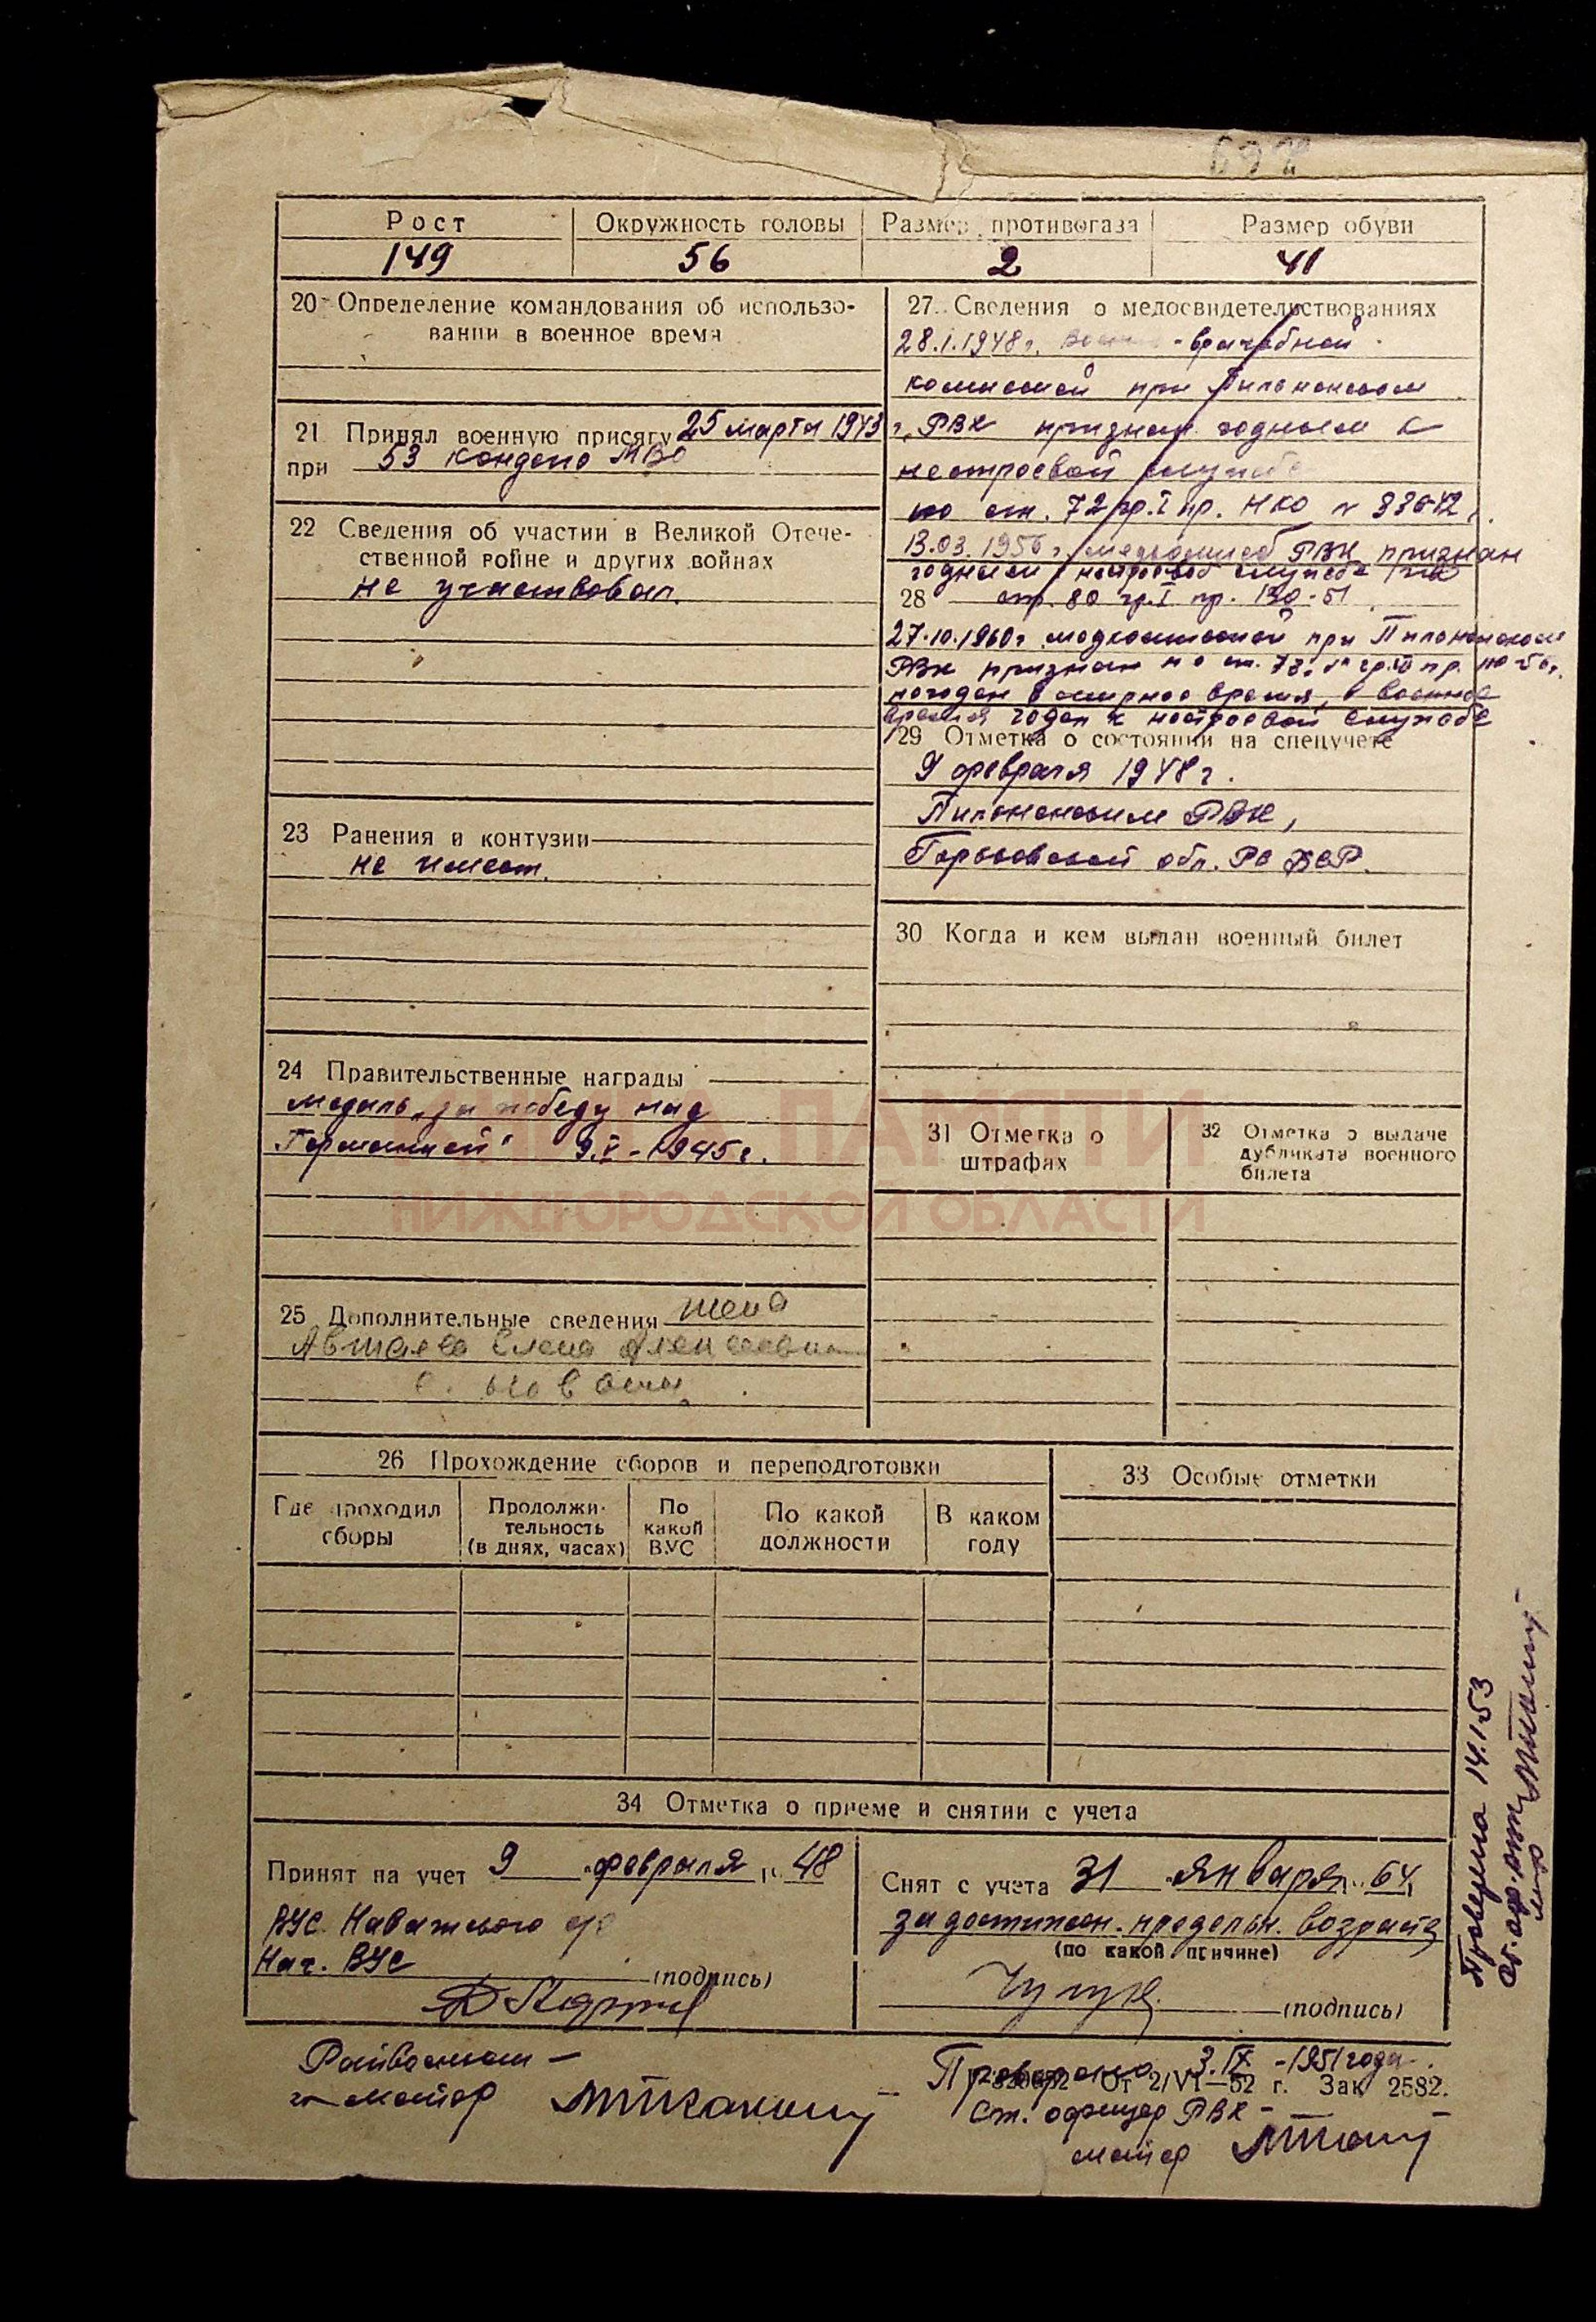 Рост Окружность головы Размер противогаза Размер обуви
149 56 2 41
20 Определение командования об использо-
вании в военное время
21 Принял военную присягу 25 марта 1943 г.
при 53 МВО
22 Сведения об участии в Великой Отече-
ственной войне и других войнах
не участвовал.
23 Ранения и контузии
не имеет.
24 Правительственные награды
медаль „за победу над
Германией" 9.V-1945г.
25 Дополнительные сведения жена
Елена
с.
27. Сведения о медосвидетельствованиях
28.1.1948г. -врачебной
комиссией при Пильнинском
РВК признан годным к
нестроевой службе
по ст. 72 гр.I пр. НКО N 336-42г.
13.03.1956г. РВК признан
годным к нестроевой службе
28 ст. 80 гр.I пр. 130-51
27.10.1960г. медкомиссией при Пильнинском
РВК признан по ст. гр. пр.
негоден в мирное время, в военное
время годен к нестроевой службе
29 Отметка о состоянии на спецучете
9 февраля 1948г.
Пильнинским РВК,
Горьковской обл. РСФСР.
30 Когда и кем выдан военный билет
31 Отметка о
штрафах
32 Отметка о выдаче
дубликата военного
билета
КНИГА ПАМЯТИ
НИЖЕГОРОДСКОЙ ОБЛАСТИ
26 Прохождение сборов и переподготовки
Где проходил
сборы
Продолжи-
тельность
(в днях, часах)
По
какой
ВУС
По какой
должности
В каком
году
33 Особые отметки
34 Отметка о приеме и снятии с учета
Принят на учет 9 февраля 48
ВУС
Нач. ВУС
(подпись)
Снят с учета 31 января 64
за достижен. предельн. возраста
(по какой причине)
(подпись)
Райвоенком –
майор
Проверено 3.IX-1951 года.
От 2/VI—52 г. Зак 2582.
Ст. офицер РВК –
майор
Проверено 14.1.53